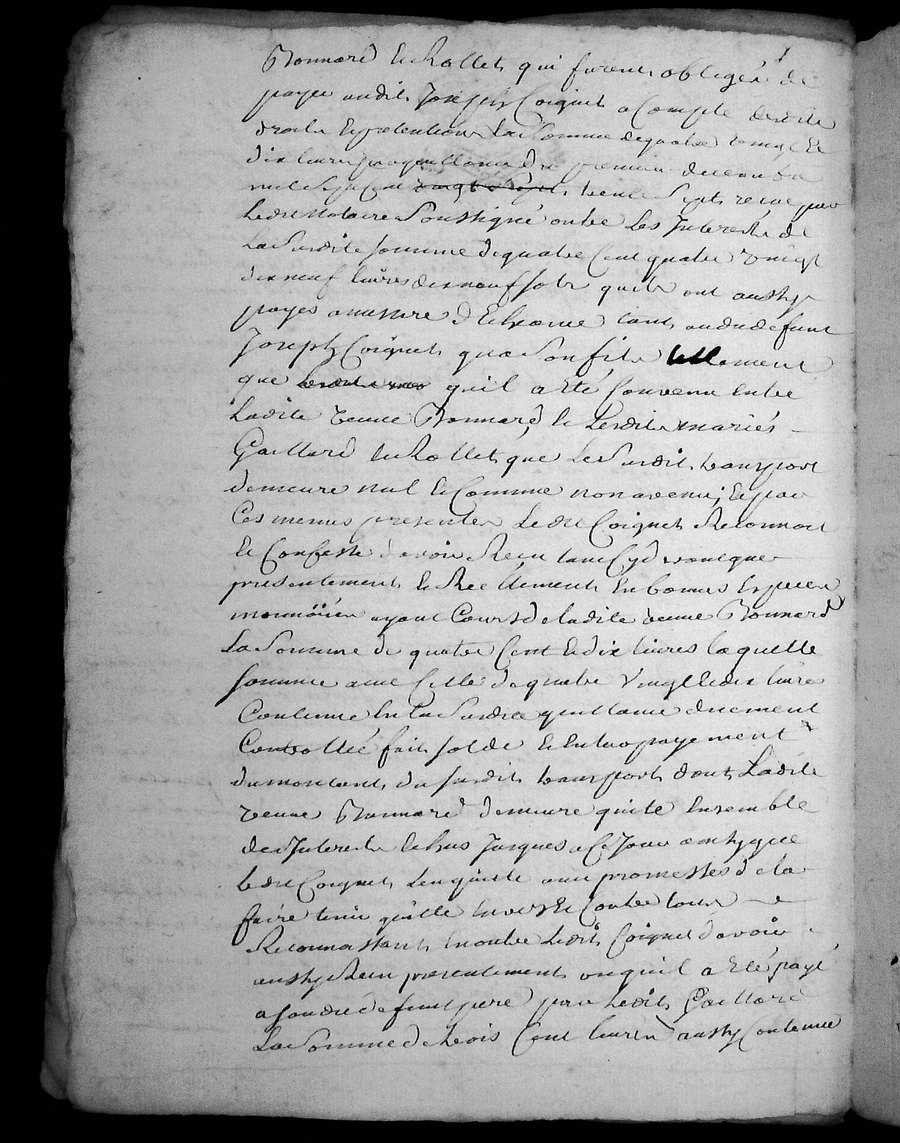 Bonnard et Rollet qui furent obligés de
payer audit Joseph Coignet a Compte desdits
droits et pretentions La Somme de quatre vingt Et
dix livres par quittance du premier decembre
mil Sept Cent vingt Sept trente Sept, recue par
Ledit Notaire Soussigné outre Les Interests de
La Susdite Somme de quatre Cent quatre vingt
dix neuf livres dix neuf sols quils ont aussy
payes a mesure d'Echeance tant audit defunt
Joseph Coignet qua Son fils tellement
que quil a eté Convenu Entre
Ladite veuve Bonnard, et Lesdits mariés
Gaillard et Rollet que Le Susdit transport
demeure nul et Comme non avenu; Et par
Ces memes presentes Ledit Coignet Reconnoit
Et Confesse d'avoir Recu tant Cydevant que
presentement et Reellement En bonnes Especes
monnoües ayant Cours de ladite veuve Bonnard
La Somme de quatre Cent et dix livres laquelle
Somme avec Celle de quatre Vingt et dix livres
Contenue En La Susdite quittance duement
Controllée fait solde et Entier payement
du montant du Susdit transport dont Ladite
veuve Bonnard demeure quitte Ensemble
des Interests Echus Jusques a Ce Jour ainsy que
ledit Coignet Len quitte avec promesse de la
faire tenir quitte Envers Et Contre tous
Reconnoissant En outre Ledit Coignet d'avoir
aussy Recu presentement ou quil a eté payé
a Sondit defunt pere par Ledit Gaillard
La Somme de trois Cent livres aussy Contenue